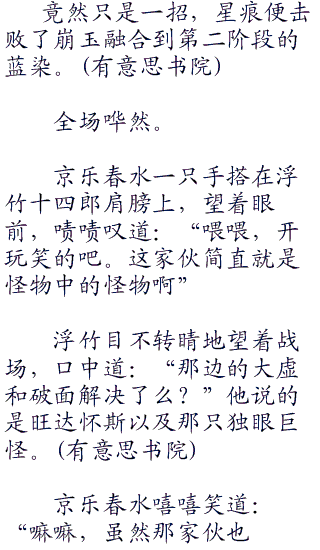 竟然只是一招，星痕便击
败了崩玉融合到第二阶段的
蓝染。(有意思书院)
全场哗然。
京乐春水一只手搭在浮
竹十四郎肩膀上，望着眼
前，啧啧叹道：“喂喂，开
玩笑的吧。这家伙简直就是
怪物中的怪物啊”
浮竹目不转睛地望着战
场，口中道：“那边的大虚
和破面解决了么？”他说的
是旺达怀斯以及那只独眼巨
怪。(有意思书院)
京乐春水嘻嘻笑道：
“嘛嘛，虽然那家伙也